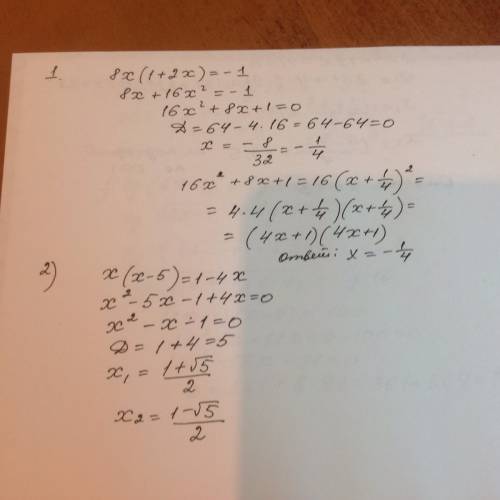 1. 8x(1+2x)=-1
8x+16x²=-1
16x²+8x+1=0
D=64-4·16=64-64=0
x=-8/32=-1/4
16x²+8x+1=16(x+1/4)²=
=4·4(x+1/4)(x+1/4)=
=(4x+1)(4x+1)
ответ: x=-1/4
2) x(x-5)=1-4x
x²-5x-1+4x=0
x²-x-1=0
D=1+4=5
x₁=(1+√5)/2
x₂=(1-√5)/2